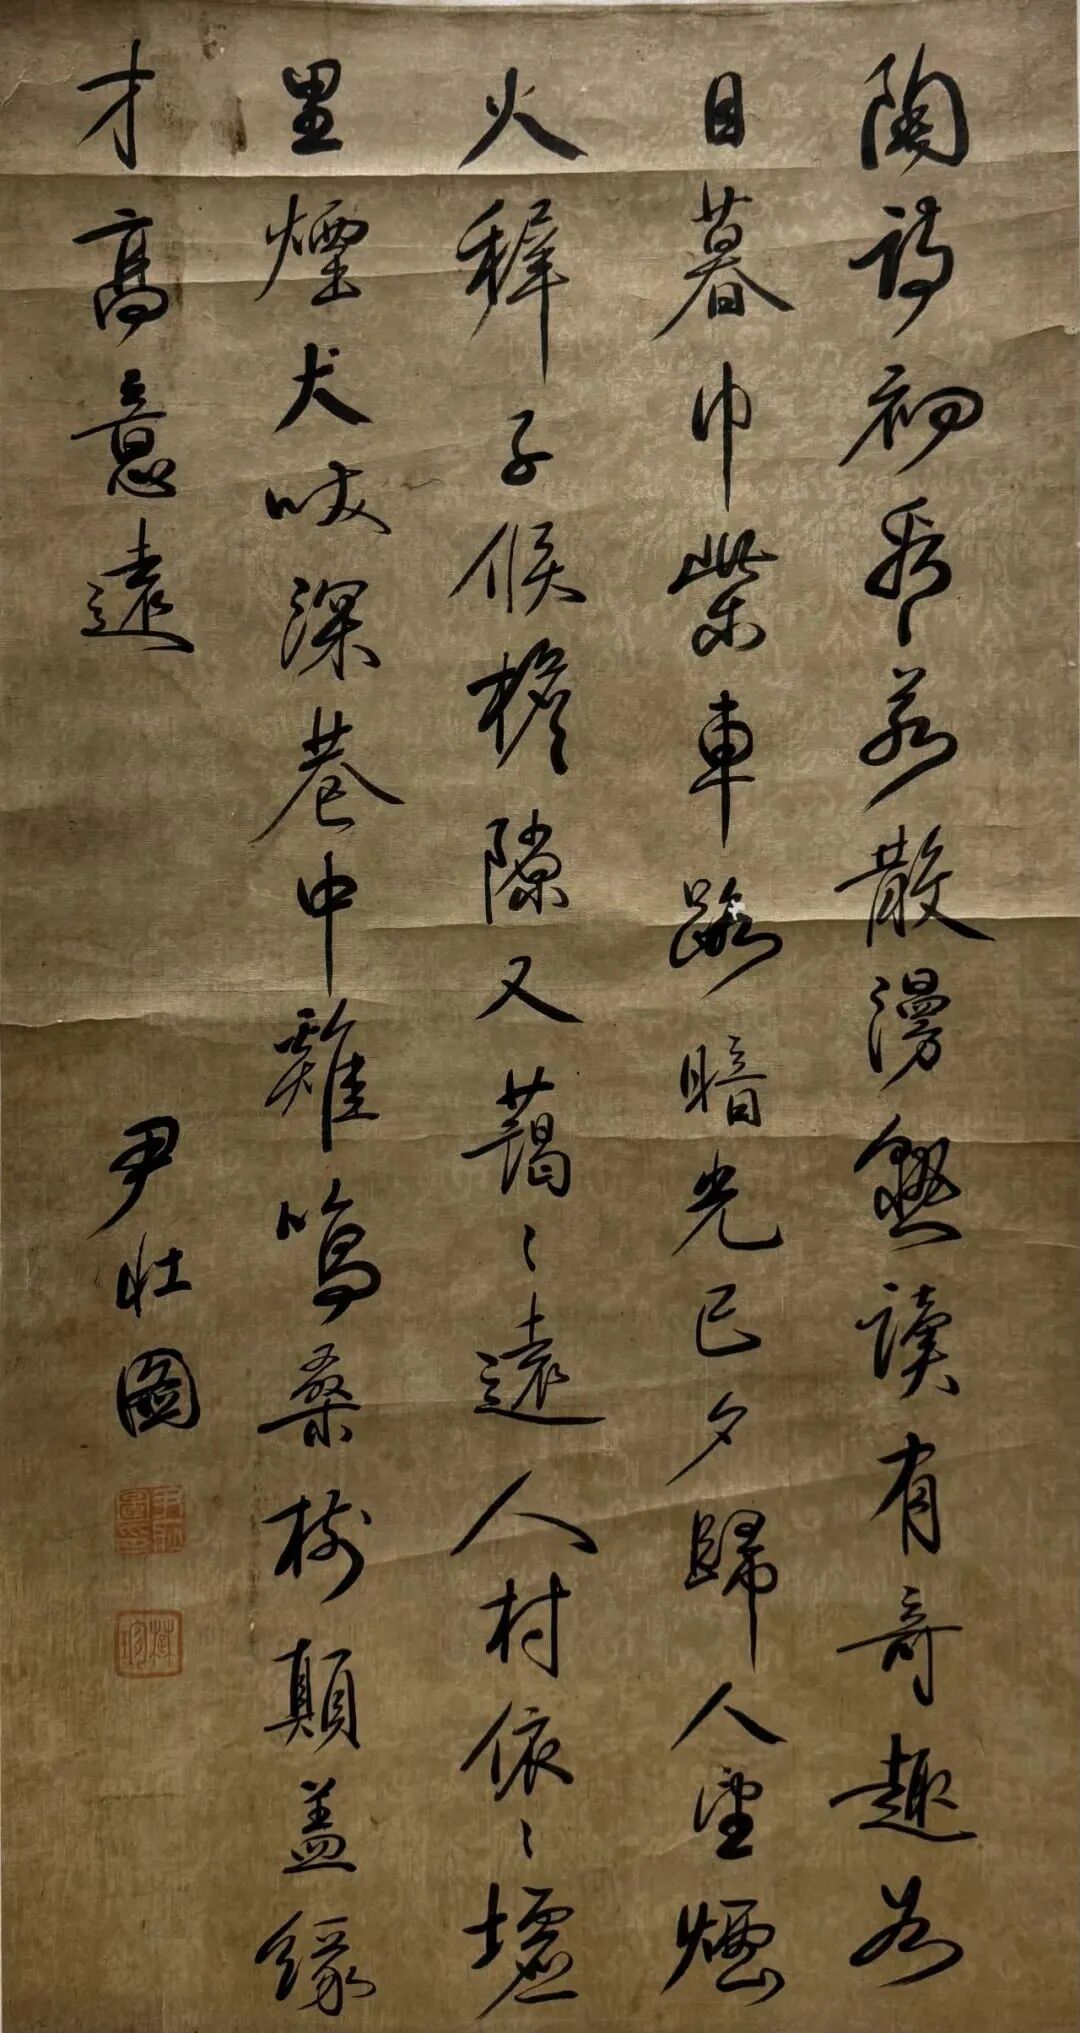 陶詩初看若散漫熟讀有奇趣
日暮巾柴車路暗光已夕歸人望煙
火稚子候檐隙又藹〻遠人村依〻墟
里煙犬吠深巷中雞鳴桑樹顛蓋緣
才高意遠
尹壯圖
尹壯圖印
楚珍